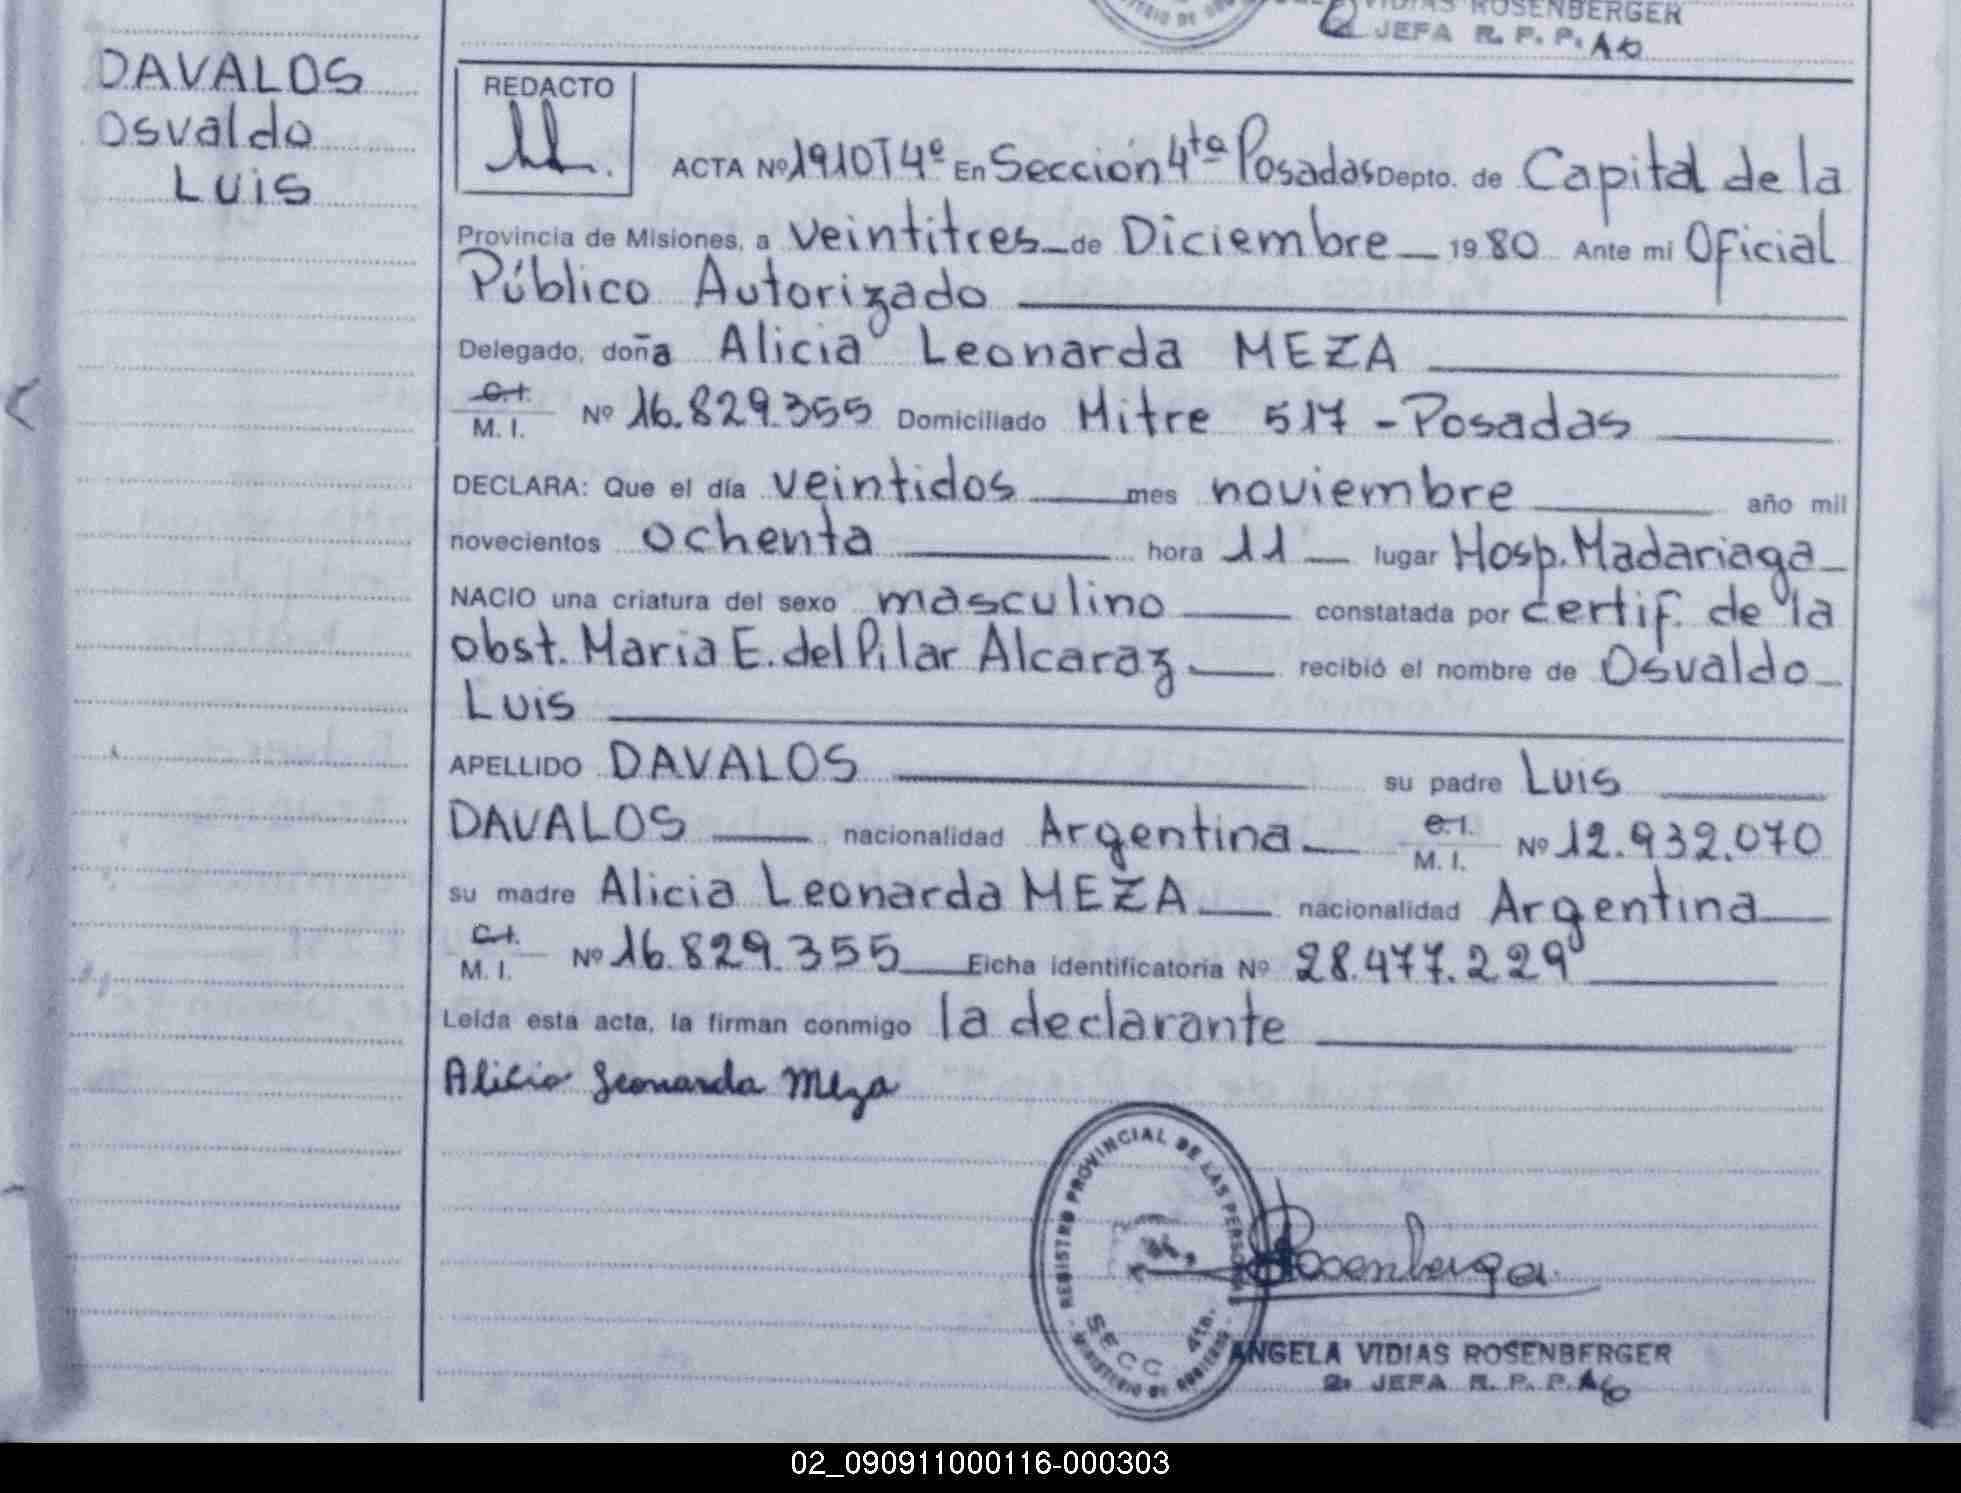 VIDIAS ROSENBERGER
JEFA R. P. P.
DAVALOS
Osvaldo
Luis
REDACTO
ACTA Nº 1910 T 4º En Sección 4ta Posadas Depto. de Capital de la
Provincia de Misiones, a veintitres de Diciembre 1980 Ante mi Oficial
Público Autorizado
Delegado, doña Alicia Leonarda MEZA
C.I.
M. I. Nº 16.829.355 Domiciliado Mitre 517 - Posadas
DECLARA: Que el día veintidos mes noviembre año mil
novecientos ochenta hora 11 lugar Hosp. Madariaga
NACIO una criatura del sexo masculino constatada por certif. de la
obst. Maria E. del Pilar Alcaraz recibió el nombre de Osvaldo
Luis
APELLIDO DAVALOS su padre Luis
DAVALOS nacionalidad Argentina C.I.
M. I. Nº 12.932.070
su madre Alicia Leonarda MEZA nacionalidad Argentina
C.I.
M. I. Nº 16.829.355 Ficha identificatoria Nº 28.477.229
Leída esta acta, la firman conmigo la declarante
Alicia Leonarda Meza
REGISTRO PROVINCIAL DE LAS PERSONAS
SECC. 4ta.
MINISTERIO DE GOBIERNO
Rosenberger
ANGELA VIDIAS ROSENBERGER
2º JEFA R. P. P.
02_090911000116-000303